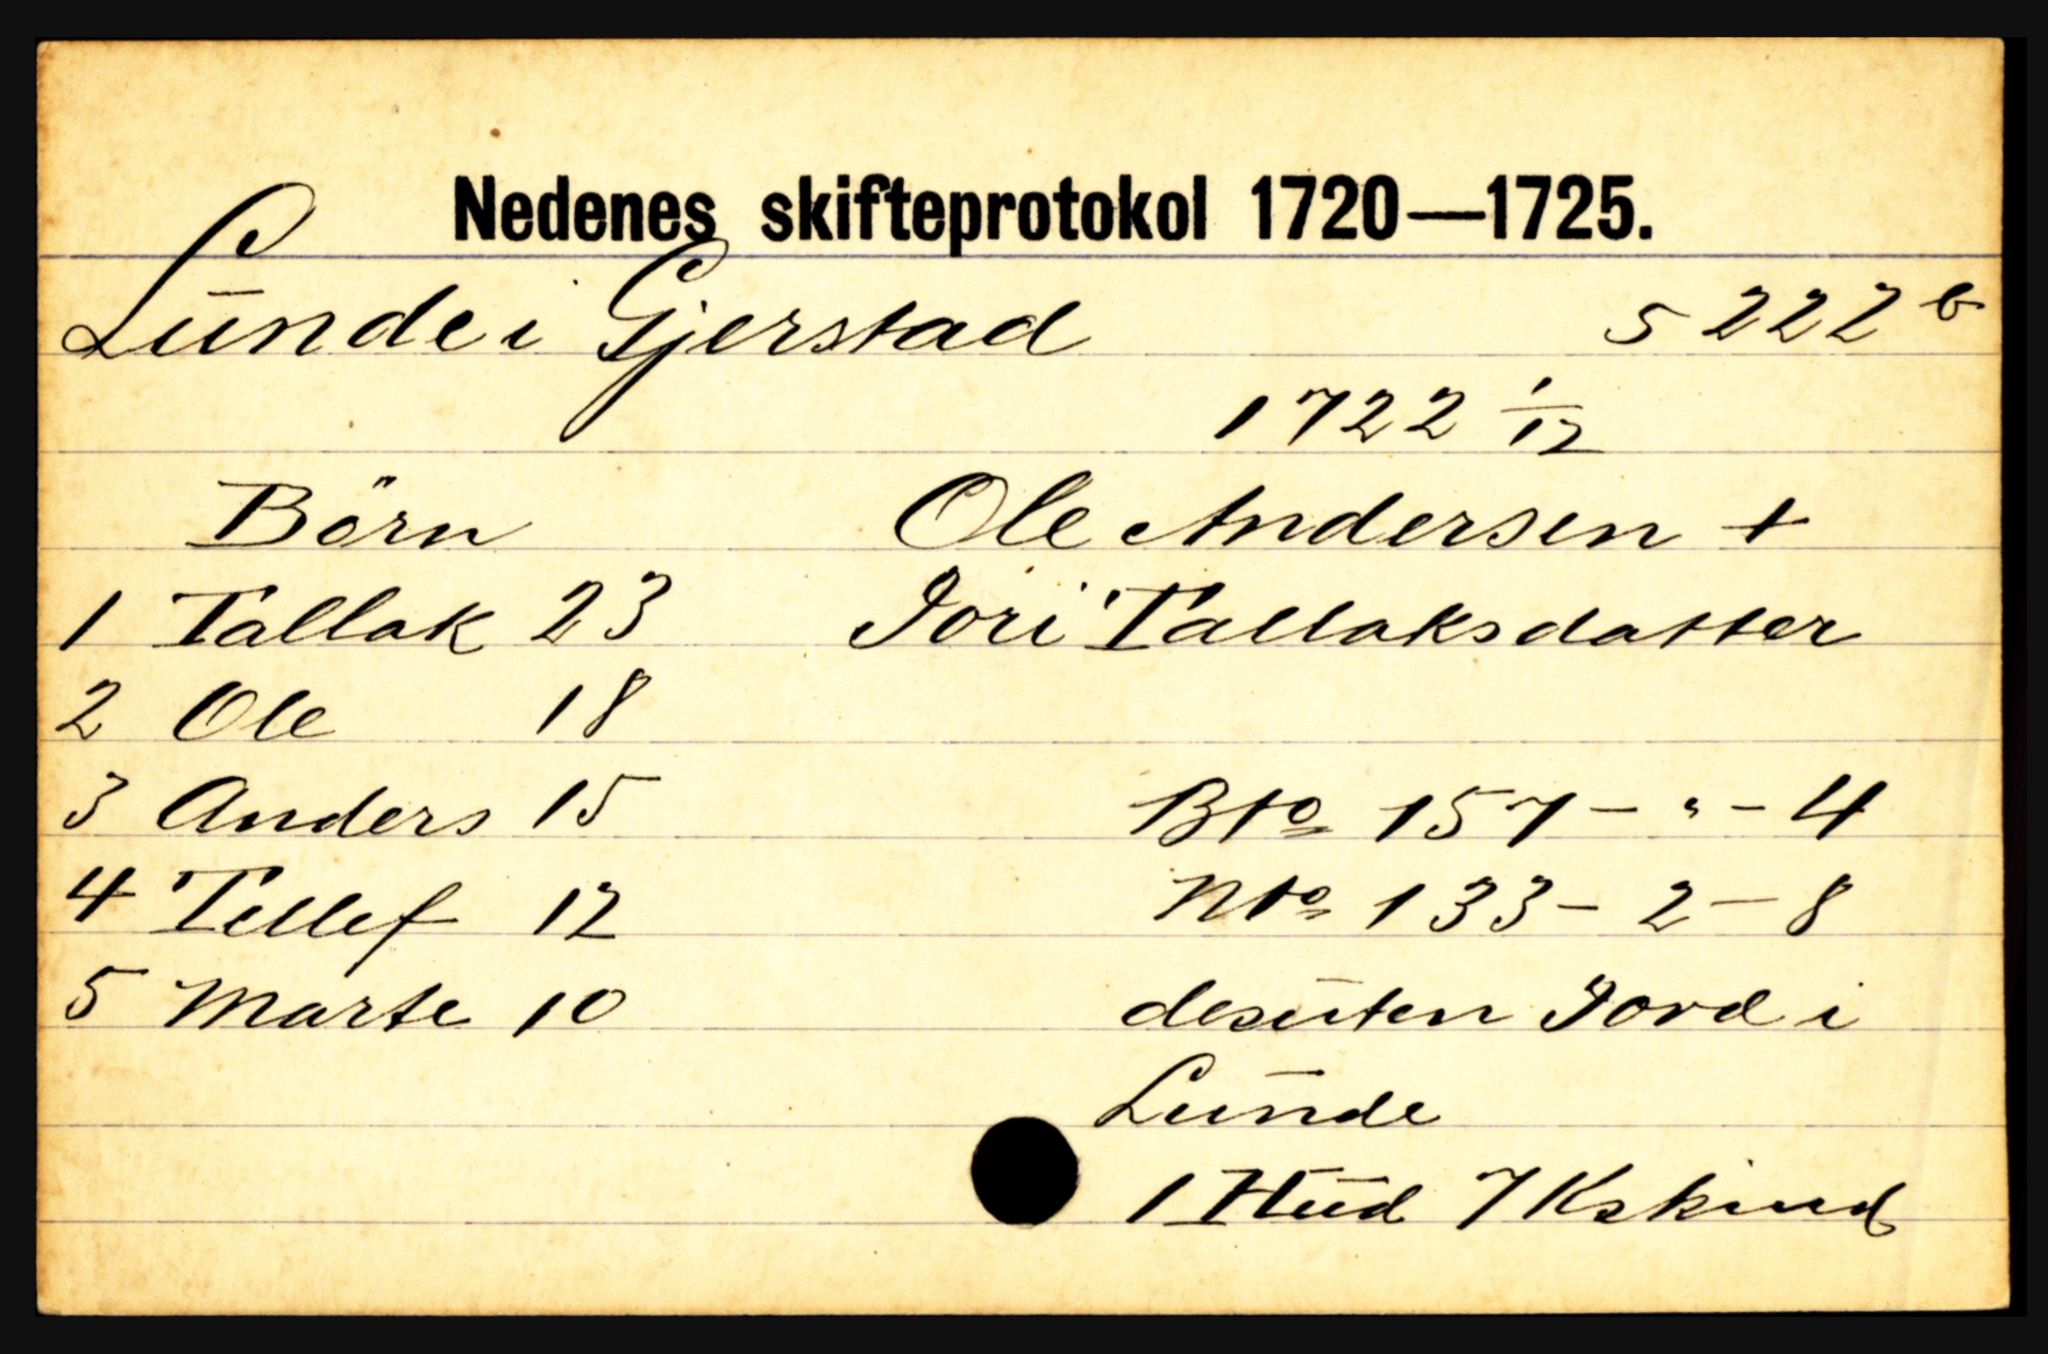 Nedenes skifteprotokol 1720—1725.
Lunde i Gjerstad s 222 b
1722 1/12
Börn Ole Andersen +
1 Tallak 23 Jori Tallaksdatter
2 Ole 18
3 Anders 15 Bto 157 - " - 4
4 Tellef 12 Nto 133 - 2 - 8
5 Marte 10 desuten Jord i
Lunde
1 Hud 7 Kskind